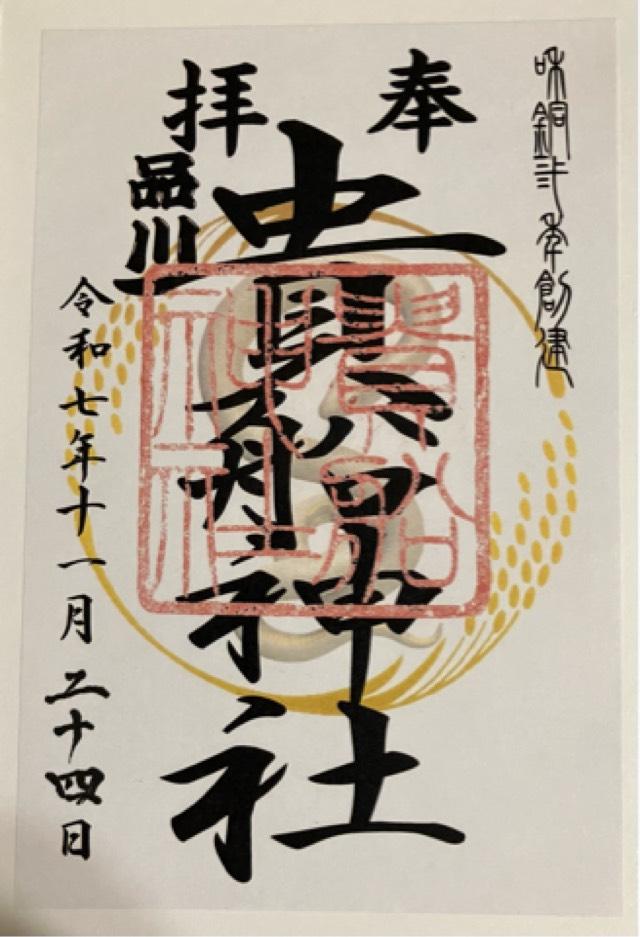 和銅弐年創建
奉拝
貴船神社
品川
令和七年十一月二十四日
貴船神社